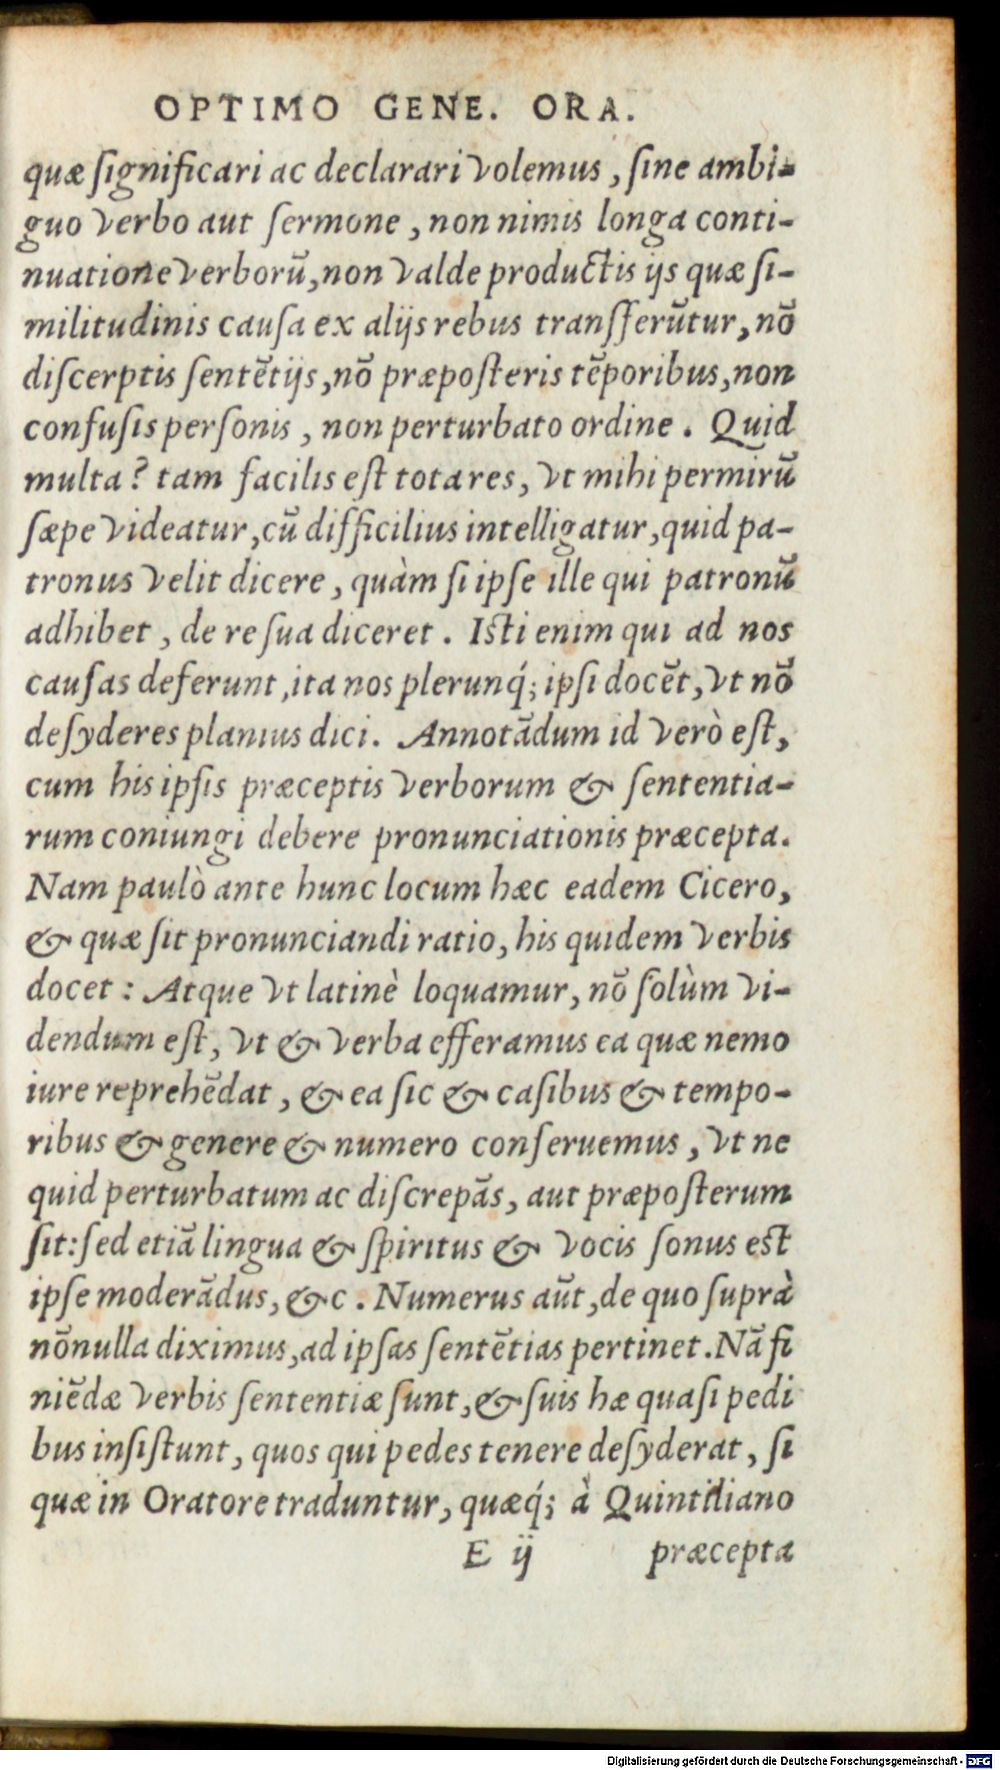 OPTIMO GENE. ORA.
quæ ſignificari ac declarari volemus, ſine ambi-
guo verbo aut ſermone, non nimis longa conti-
nuatione verborũ, non valde productis ijs quæ ſi-
militudinis cauſa ex alijs rebus transferũtur, nõ
diſcerptis ſentẽtijs, nõ præpoſteris tẽporibus, non
confuſis perſonis, non perturbato ordine. Quid
multa? tam facilis eſt tota res, vt mihi permirũ
ſæpe videatur, cũ difficilius intelligatur, quid pa-
tronus velit dicere, quàm ſi ipſe ille qui patronũ
adhibet, de re ſua diceret. Iſti enim qui ad nos
cauſas deferunt, ita nos plerunq́; ipſi docẽt, vt nõ
deſyderes planius dici. Annotãdum id verò eſt,
cum his ipſis præceptis verborum & ſententia-
rum coniungi debere pronunciationis præcepta.
Nam paulò ante hunc locum hæc eadem Cicero,
& quæ ſit pronunciandi ratio, his quidem verbis
docet: Atque vt latinè loquamur, nõ ſolùm vi-
dendum eſt, vt & verba efferamus ea quæ nemo
iure reprehẽdat, & ea ſic & caſibus & tempo-
ribus & genere & numero conſeruemus, vt ne
quid perturbatum ac diſcrepãs, aut præpoſterum
ſit: ſed etiã lingua & ſpiritus & vocis ſonus eſt
ipſe moderãdus, &c. Numerus aũt, de quo ſuprà
nõnulla diximus, ad ipſas ſentẽtias pertinet. Nã fi
niẽdæ verbis ſententiæ ſunt, & ſuis hæ quaſi pedi
bus inſiſtunt, quos qui pedes tenere deſyderat, ſi
quæ in Oratore traduntur, quæq́; à Quintiliano
E ij præcepta
Digitalisierung gefördert durch die Deutsche Forschungsgemeinschaft - DFG